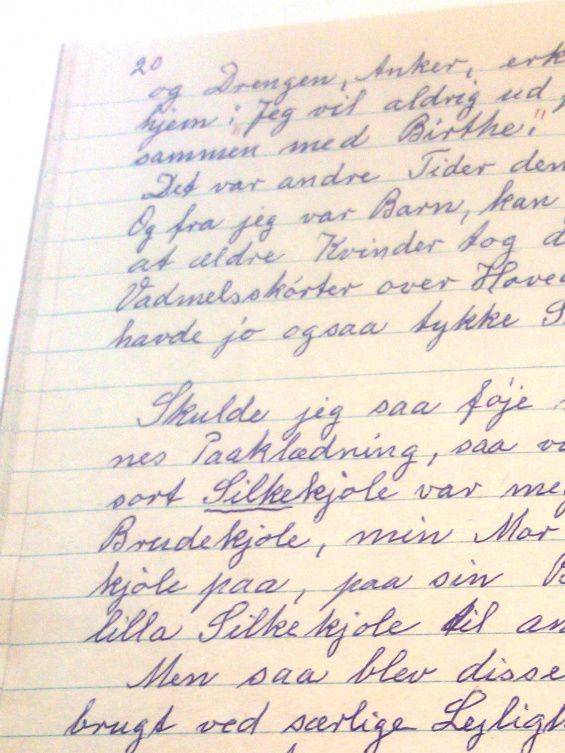 20
og Drengen, Anker, erk
hjem: "Jeg vil aldrig ud
sammen med Birthe."
Det var andre Tider den
Og fra jeg var Barn, kan
at ældre Kvinder tog d
Vadmelsskórter over Hoved
havde jo ogsaa tykke S
Skulde jeg saa føje
nes Paaklædning, saa va
sort Silkekjole var me
Brudekjole, min Mor
kjole paa, paa sin B
lilla Silkekjole til an
Men saa blev disse
brugt ved særlige Lejligh